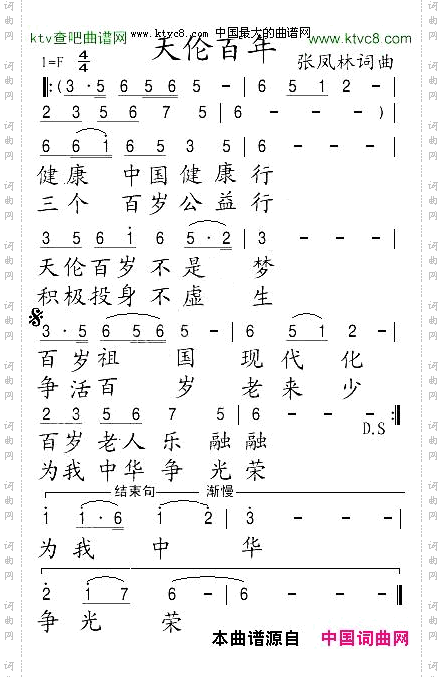 www.ktvc8.com 中国最大的曲谱网
ktv查吧曲谱网 天伦百年 www.ktvc8.com
1=F 4/4 张凤林词曲
‖:(3·5 6 5 6 5 | 6 5 1 2 - |
2 3 5 6 7 5 | 6 - - -)
6 6 1̇ 6 5 3 | 6 - - - |
健康 中国健康行
三个 百岁公益行
3 5 6 1̇ 6 5·2 | 3 - - - |
天伦百岁不是 梦
积极投身不虚 生
3·5 6 5 6 5 - | 6 5 1 2 - |
百岁祖 国 现代化
争活百 岁 老来少
2 3 5 6 7 5 | 6 - - - :‖
D.S
百岁老人乐融融
为我中华争光荣
结束句 渐慢
1̇ 1̇·6 1̇ 2̇ | 3̇ - - - |
为我 中 华
2̇ 1̇ 7 6 - | 6 - - - ‖
争光 荣
本曲谱源自 中国词曲网
词曲网